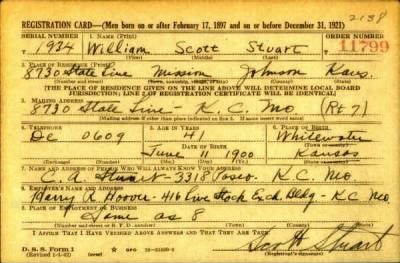 2138
REGISTRATION CARD—(Men born on or after February 17, 1897 and on or before December 31, 1921)
SERIAL NUMBER 1. NAME (Print) ORDER NUMBER
1934 William Scott Stuart 11799
(First) (Middle) (Last)
2. PLACE OF RESIDENCE (Print)
8730 State Line Mission Johnson Kans.
(Number and street) (Town, township, village, or city) (County) (State)
[THE PLACE OF RESIDENCE GIVEN ON THE LINE ABOVE WILL DETERMINE LOCAL BOARD
JURISDICTION; LINE 2 OF REGISTRATION CERTIFICATE WILL BE IDENTICAL]
3. MAILING ADDRESS
8730 State Line - K.C. Mo (Rt 7)
[Mailing address if other than place indicated on line 2. If same insert word same]
4. TELEPHONE 5. AGE IN YEARS 6. PLACE OF BIRTH
De 0609 41 Whitewater
DATE OF BIRTH (Town or county)
June 11 1900 Kansas
(Exchange) (Number) (Mo.) (Day) (Yr.) (State or country)
7. NAME AND ADDRESS OF PERSON WHO WILL ALWAYS KNOW YOUR ADDRESS
Stuart - 3318 K.C. Mo
8. EMPLOYER'S NAME AND ADDRESS
Harry L Hoover - 416 Live Stock Exch. Bldg - K.C Mo
9. PLACE OF EMPLOYMENT OR BUSINESS
Same as 8
(Number and street or R. F. D. number) (Town) (County) (State)
I AFFIRM THAT I HAVE VERIFIED ABOVE ANSWERS AND THAT THEY ARE TRUE.
D. S. S. Form 1
(Revised 1-1-42) (over) GPO Scott Stuart
(Registrant's signature)